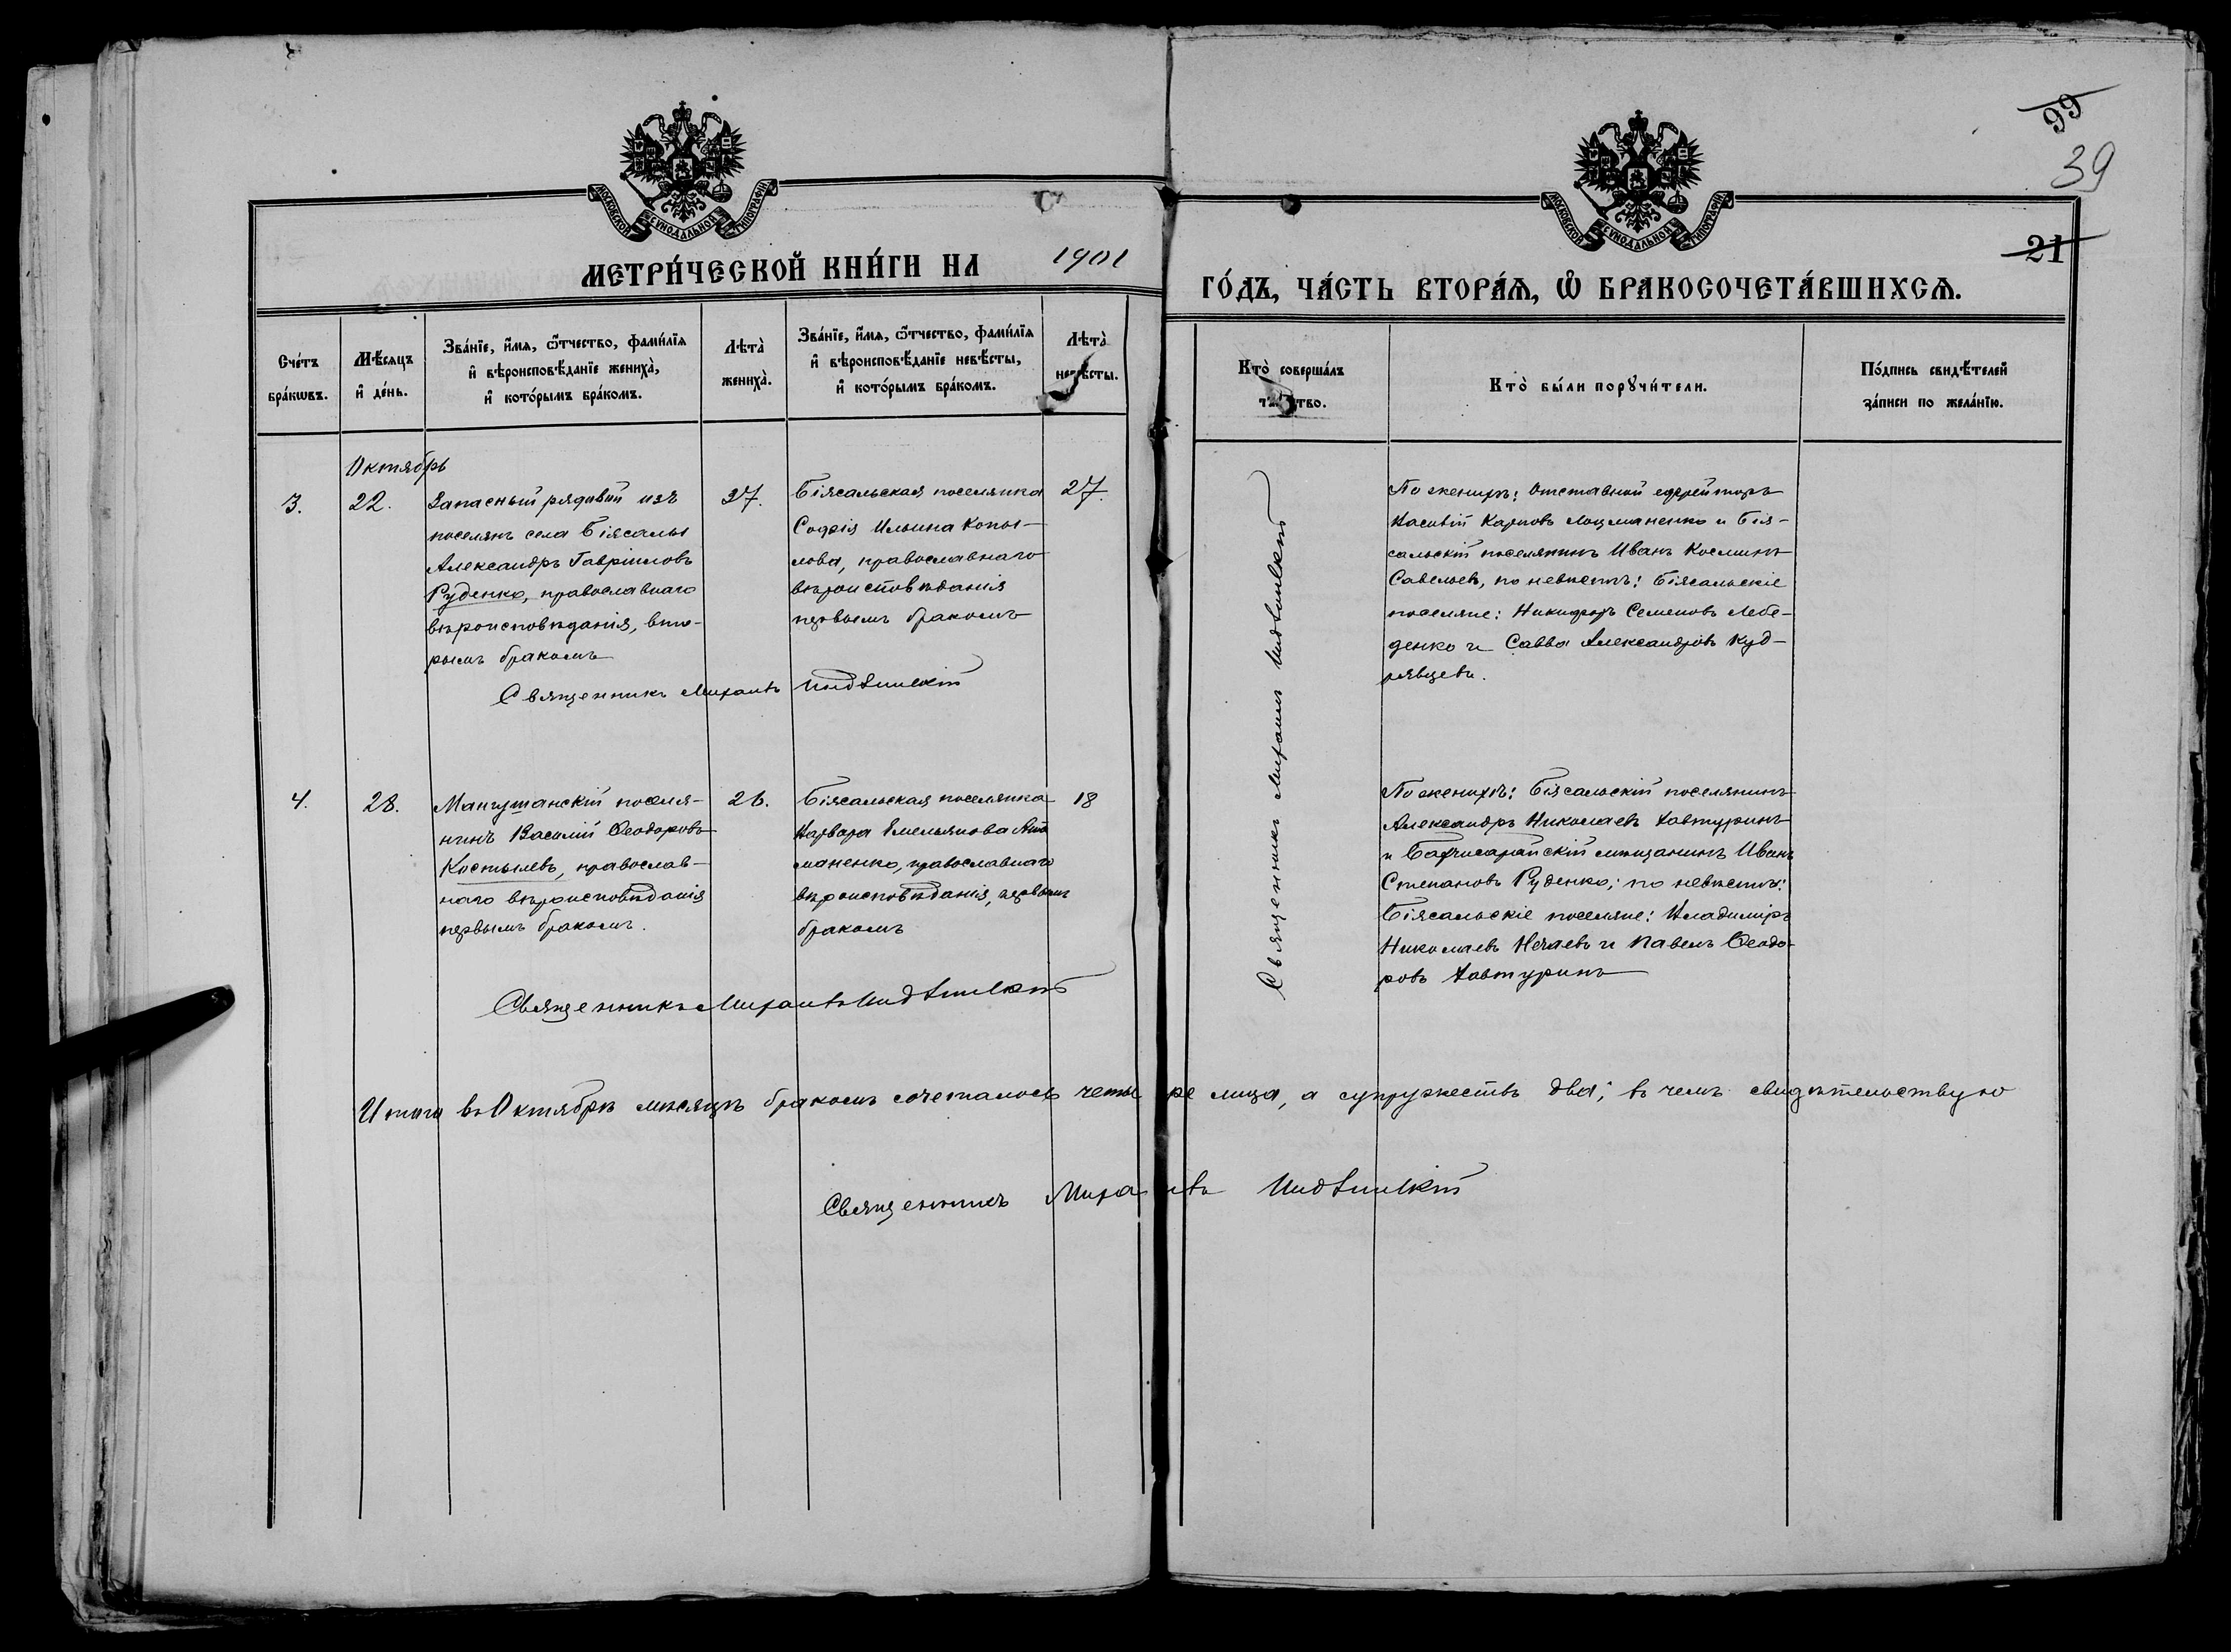 99
39
21
МОСКОВСКОЙ СѴНОДАЛЬНОЙ ТИПОГРАФІИ
МОСКОВСКОЙ СѴНОДАЛЬНОЙ ТИПОГРАФІИ
МЕТРИ́ЧЕСКОЙ КНИ́ГИ НА 1901 ГО́ДЪ, ЧА́СТЬ ВТОРА́Я, Ѽ БРАКОСОЧЕТА́ВШИХСЯ.
Сче́тъ
бра́кѡвъ.
Мѣ́сяцъ
и҆ де́нь.
Зва́нїе, и҆́мя, ѻ҆́тчество, фами́лїя
и҆ вѣроисповѣ́данїе жениха̀,
и҆ кото́рымъ бра́комъ.
Лѣта̀
жениха̀.
Зва́нїе, и҆́мя, ѻ҆́тчество, фами́лїя
и҆ вѣроисповѣ́данїе невѣ́сты,
и҆ кото́рымъ бра́комъ.
Лѣта̀
невѣ́сты.
Кто̀ соверша́лъ
та́инство.
Кто̀ бы́ли порꙋчи́тели.
По́дпись свидѣ́телей
за́писи по жела́нїю.
Октябрь
3.
22.
Запасный рядовой изъ
поселянъ села Біясалы
Александръ Гавріиловъ
Руденко, православнаго
вѣроисповѣданія, вто-
рымъ бракомъ
37.
Біясальская поселянка
Софія Ильина Копы-
лова, православнаго
вѣроисповѣданія
первымъ бракомъ
27.
Священникъ Михаилъ
По женихѣ: Отставной ефрейторъ
Касьтій Карповъ Лоцманенко и Бія-
сальскій поселянинъ Иванъ Косминъ
Савельевъ, по невѣстѣ: Біясальскіе
поселяне: Никифоръ Семеновъ Лебе-
денко и Савва Александровъ Куд-
рявцевъ.
Священникъ Михаилъ
4.
28.
Мангушскій поселя-
нинъ Василій Ѳеодоровъ
Костылевъ, православ-
наго вѣроисповѣданія
первымъ бракомъ.
26.
Біясальская поселянка
Варвара Емельянова
маненко, православнаго
вѣроисповѣданія, первымъ
бракомъ
18
Священникъ Михаилъ
По женихѣ: Біясальскій поселянинъ
Александръ Николаевъ Хавтуринъ
и Бахчисарайскій мѣщанинъ Иванъ
Степановъ Руденко; по невѣстѣ:
Біясальскіе поселяне: Владиміръ
Николаевъ Нечаевъ и Павелъ Ѳеодо-
ровъ Хавтуринъ
Итого въ Октябрѣ мѣсяцѣ бракомъ сочеталось четыре лица, а супружествъ два; въ чемъ свидѣтельствую
Священникъ Михаилъ